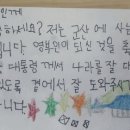 인께
하세요? 저는 군산에 사는
니다. 영부인이 되신 것을 축
대통령께서 나라를 잘 다
있도록 곁에서 잘 도와주세
니다